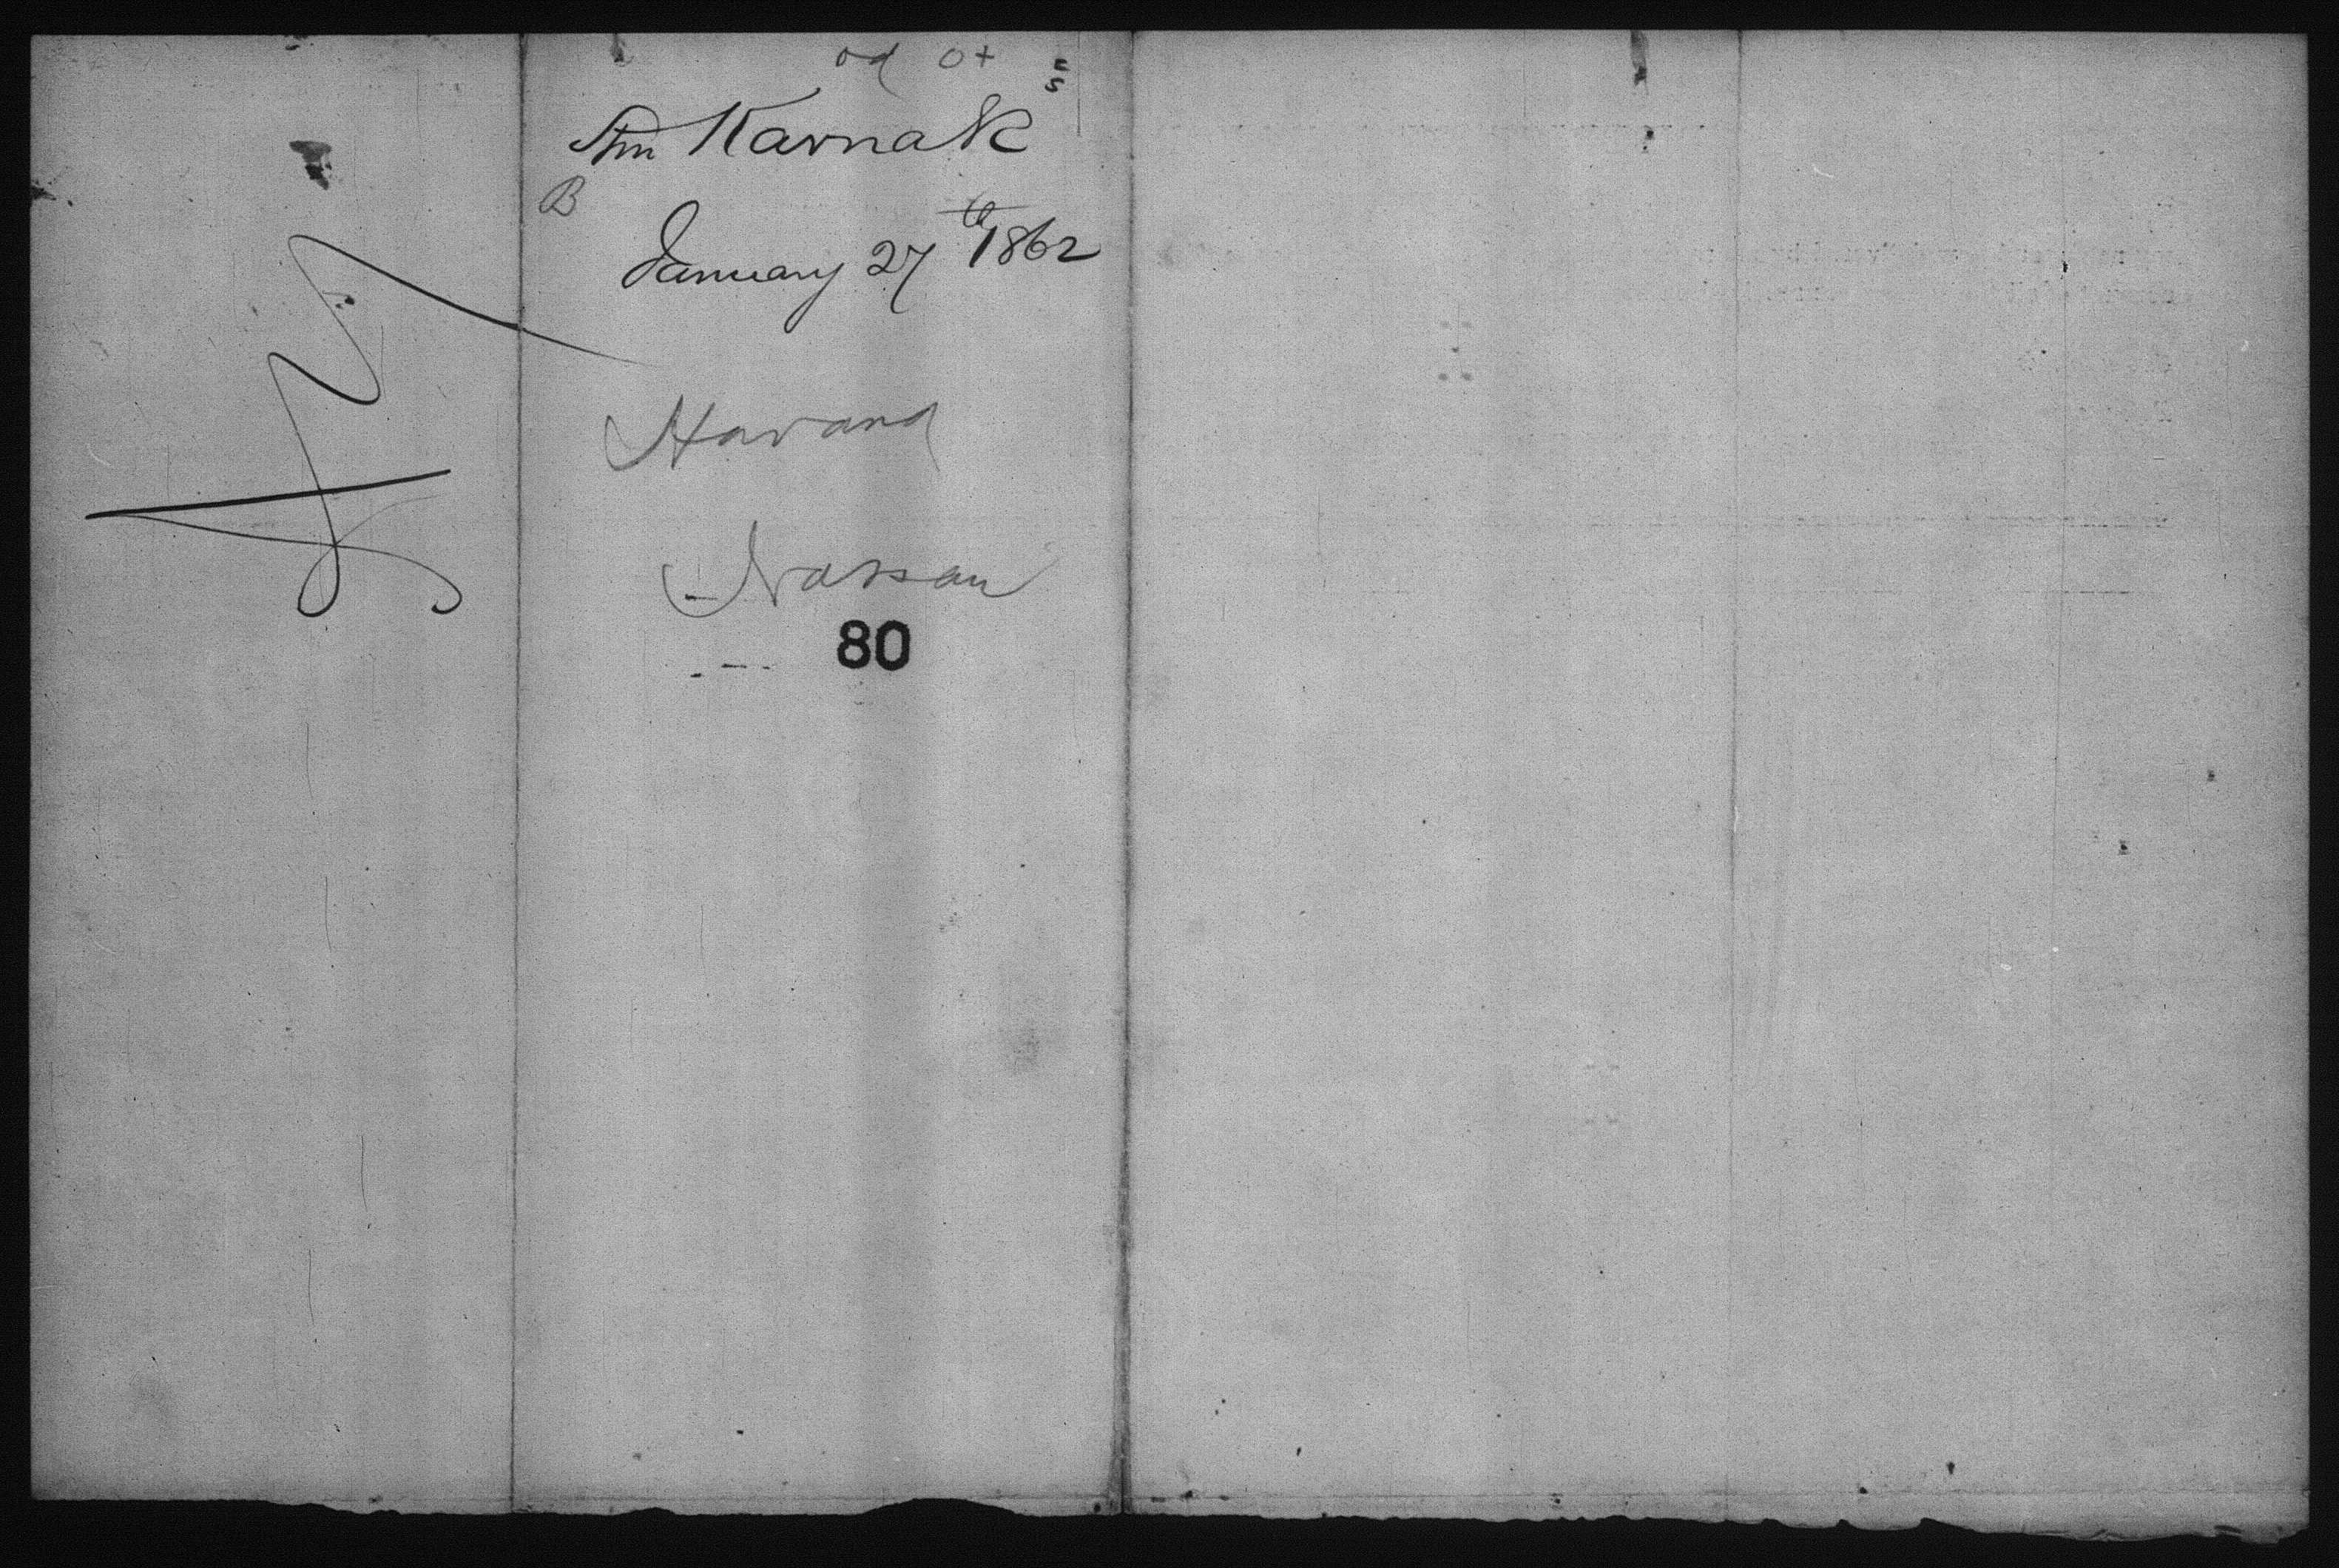 Stm Karnak
B
January 27th 1862
Havana
Nassau
80